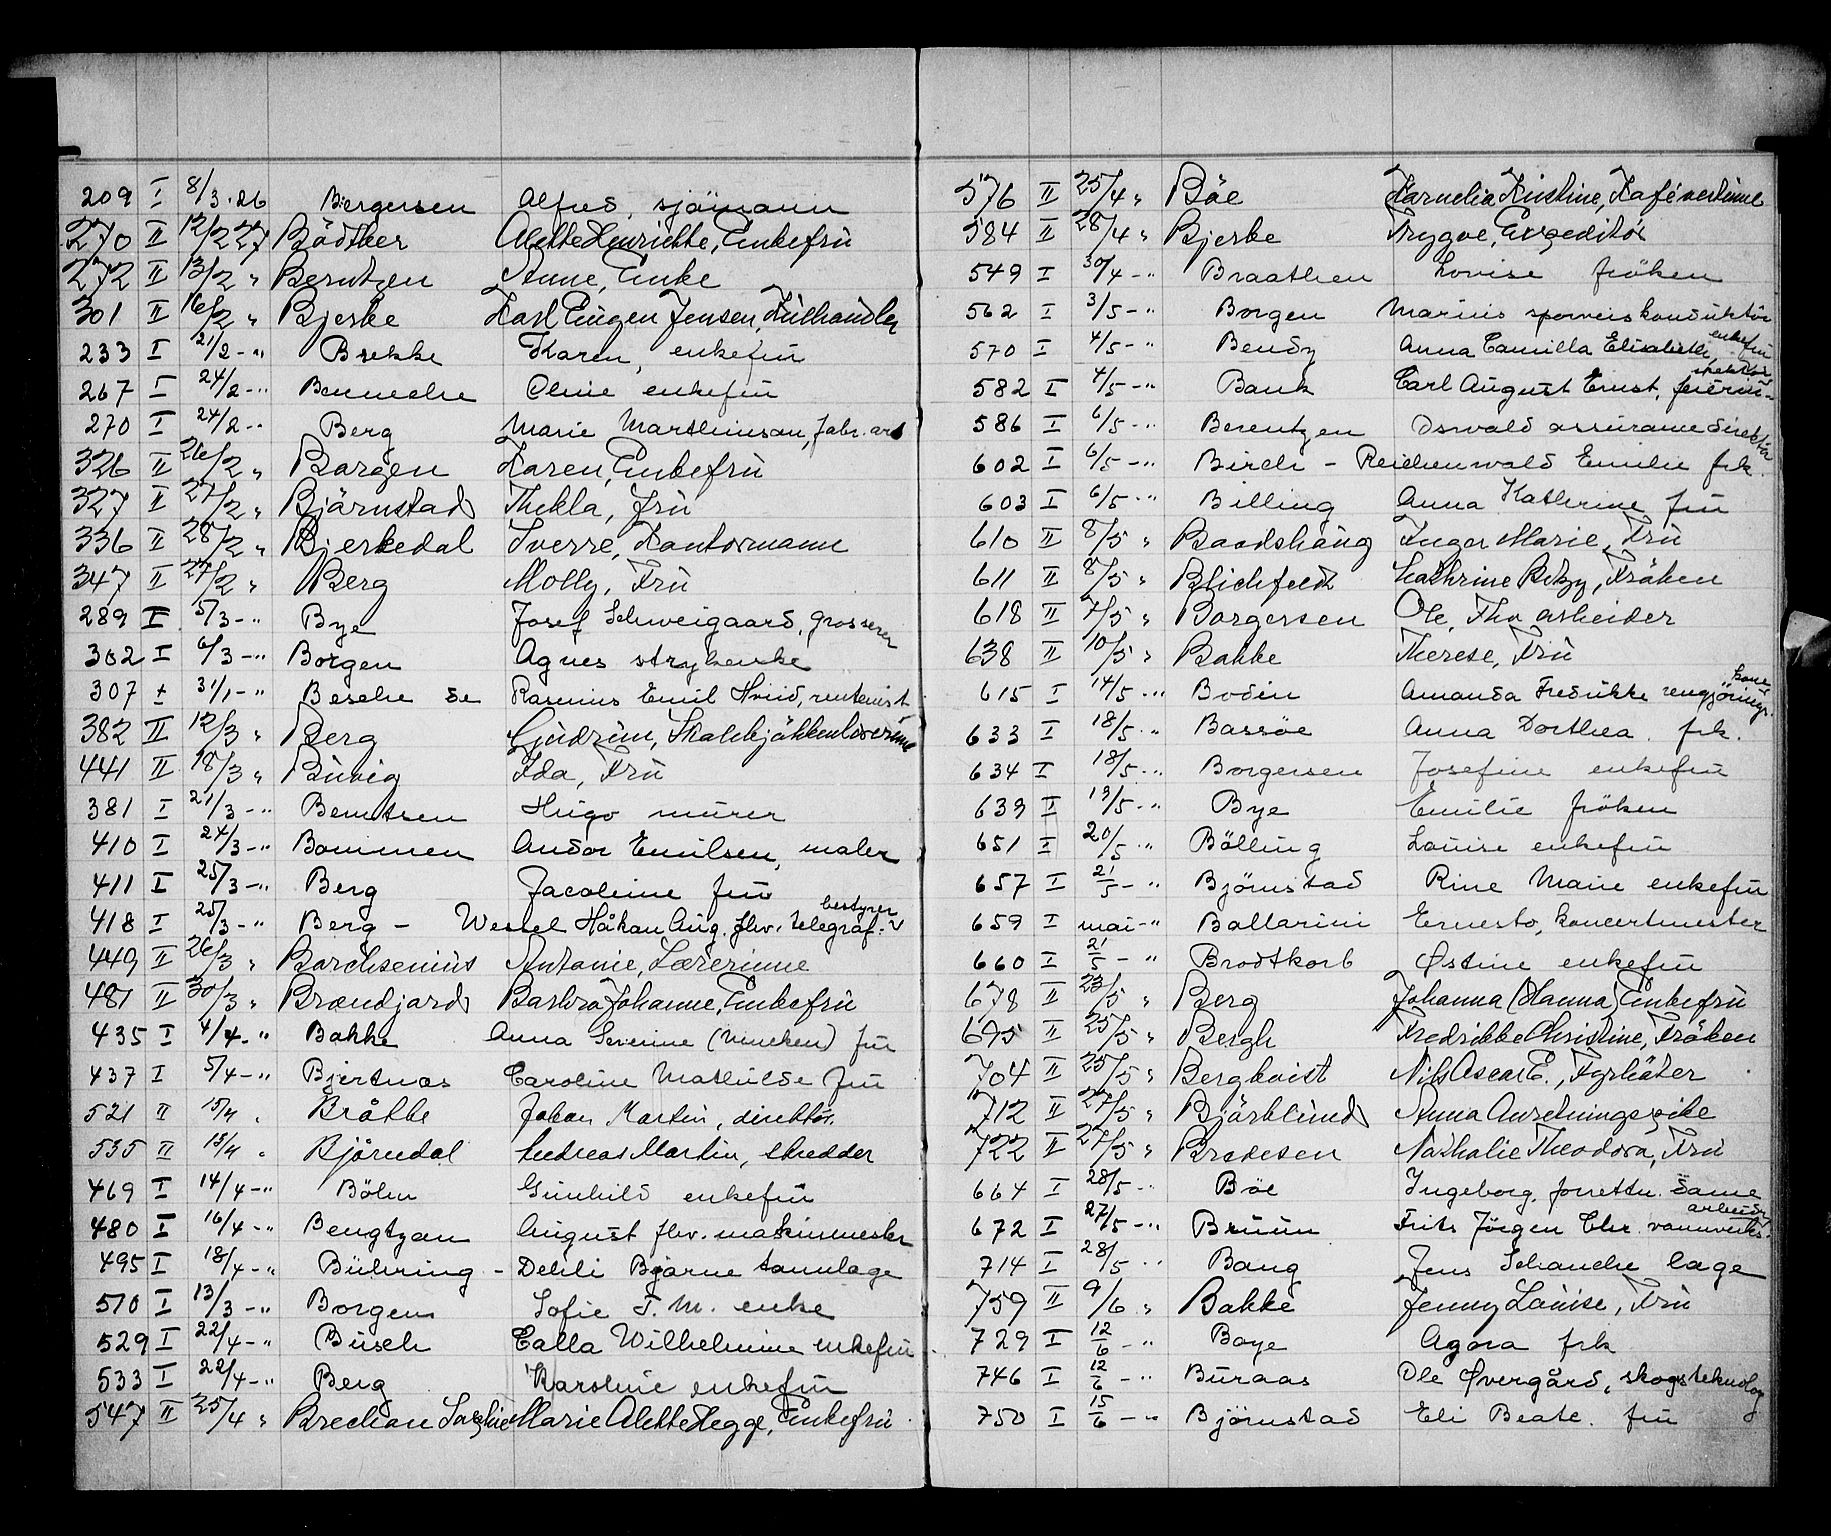 209 I 8/3 . 26 Bergersen Alfred, sjömann
270 II 12/2 27 Bödtker Alette Henriette, Enkefru
272 II 13/2 " Berntzen Anne, Enke
301 II 16/2 " Bjerke Karl Eugen Jensen, Kulhandler
233 I 21/2 - " Brekke Karen, enkefru
267 I 24/2 - " Benneche Oline enkefru
270 I 24/2 - " Berg Marie Marthinsen, fabr. arb
326 II 26/2 " Borgen Karen, Enkefru
327 II 27/2 " Björnstad Thekla, Fru
336 II 28/2 " Bjerkedal Sverre, Kontormann
347 II 27/2 " Berg Molly, Fru
289 I 5/3 - " Bye Josef Schweigaard, grosserer
302 I 6/3 - " Borgen Agnes strykerske
307 I 31/1 - " Besche de Rasmus Emil Hviid, rentenist
382 II 12/3 " Berg Gudrun,
441 II 18/3 " Buvig Ida, Fru
381 I 21/3 - " Berntsen Hugo murer
410 I 24/3 - " Bommen Andor Emilsen, maler
411 I 25/3 - " Berg Jacobine fru
418 I 25/3 - " Berg - Wessel Håkan Aug. fhv. telegraf- bestyrer
449 II 26/3 " Borchsenius Antonie, Lærerinne
481 II 30/3 " Brandjord Barbra Johanne, Enkefru
435 I 4/4 - " Bakke Anna Severine fru
437 I 5/4 - " Bjertnæs Caroline Mathilde fru
521 II 15/4 " Bråthe Johan Martin, direktör.
535 II 15/4 " Björndal Andreas Martin, skredder
469 I 14/4 - " Böhn Gunhild enkefru
480 I 16/4 - " Bengtzon August fhv. maskinmester
495 I 18/4 - " Bühring - Dehli Bjarne tannlæge
510 I 13/3 - " Borgen Sofie T. M. enke
529 I 22/4 - " Busch Calla Wilhelmine enkefru
533 I 22/4 - " Berg Karoline enkefru
547 II 25/4 " Brechan Marie Alette Hegge, Enkefru
576 II 25/4 " Böe Kornelia Kristine, Kafévertinne
584 II 28/4 " Bjerke Trygve, Expeditör
549 I 30/4 - " Braathen Lovise fröken
562 I 3/5 - " Borgen Marius sporveiskonduktör
570 I 4/5 - " Bendz Anna Camilla Elisabeth, enkefru
582 I 4/5 - " Bank Carl August Ernst, feierin- spektör
586 I 6/5 - " Berentzen Osvald assuransedirektör
602 I 6/5 - " Birch - Reichenwald Emilie frk.
603 I 6/5 - " Billing Anna Kathrine fru
610 II 8/5 " Baadshaug Inger Marie, Fru
611 II 8/5 " Blichfeldt Cathrine Betzy, Fröken
618 II 7/5 " Borgersen Ole, Fhv arbeider
638 II 10/5 " Bakke Therese, Fru
615 I 14/5 - " Bodin Amanda Fredrikke rengjörings- kone
633 I 18/5 - " Bassöe Anna Dorthea. frk.
634 I 18/5 - " Borgersen Josefine enkefru
639 I 13/5 - " Bye Emilie fröken
651 I 20/5 - " Bölling Louise enkefru
657 I 21/5 - " Björnstad Rine Marie enkefru
659 I mai - " Ballarini Ernesto, koncertmester
660 I 21/5 - " Brodtkorb Østine enkefru
678 II 23/5 " Berg Johanna (Hanna) Enkefru
695 II 25/5 " Bergh Fredrikke Christine, Fröken
704 II 25/5 " Bergkvist Nils Oscar E., Fyrböter
712 II 27/5 " Björklund Anna Anretningspike
722 II 27/5 " Bredesen Nathalie Theodora, Fru
664 I 28/5 - " Böe Ingeborg, forretn. dame
672 I 27/5 - " Bruun Frits Jörgen Chr. vannverks- arbeider
714 I 28/5 " Bang Jens Schanche læge
759 II 9/6 " Bakke Jenny Louise, Fru
729 I 12/6 - " Boye Agora frk
746 I 12/6 - " Buraas Ole Øvergård, skogsteknolog
750 I 15/6 - " Björnstad Eli Beate. fru